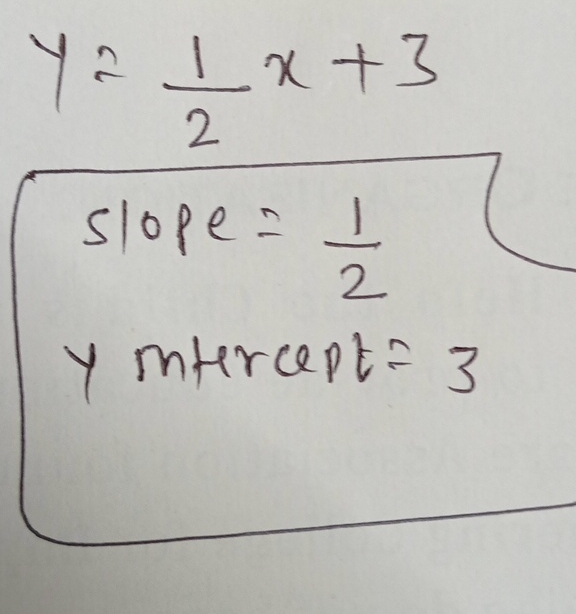 y = 1/2 x + 3
slope = 1/2
y intercept = 3